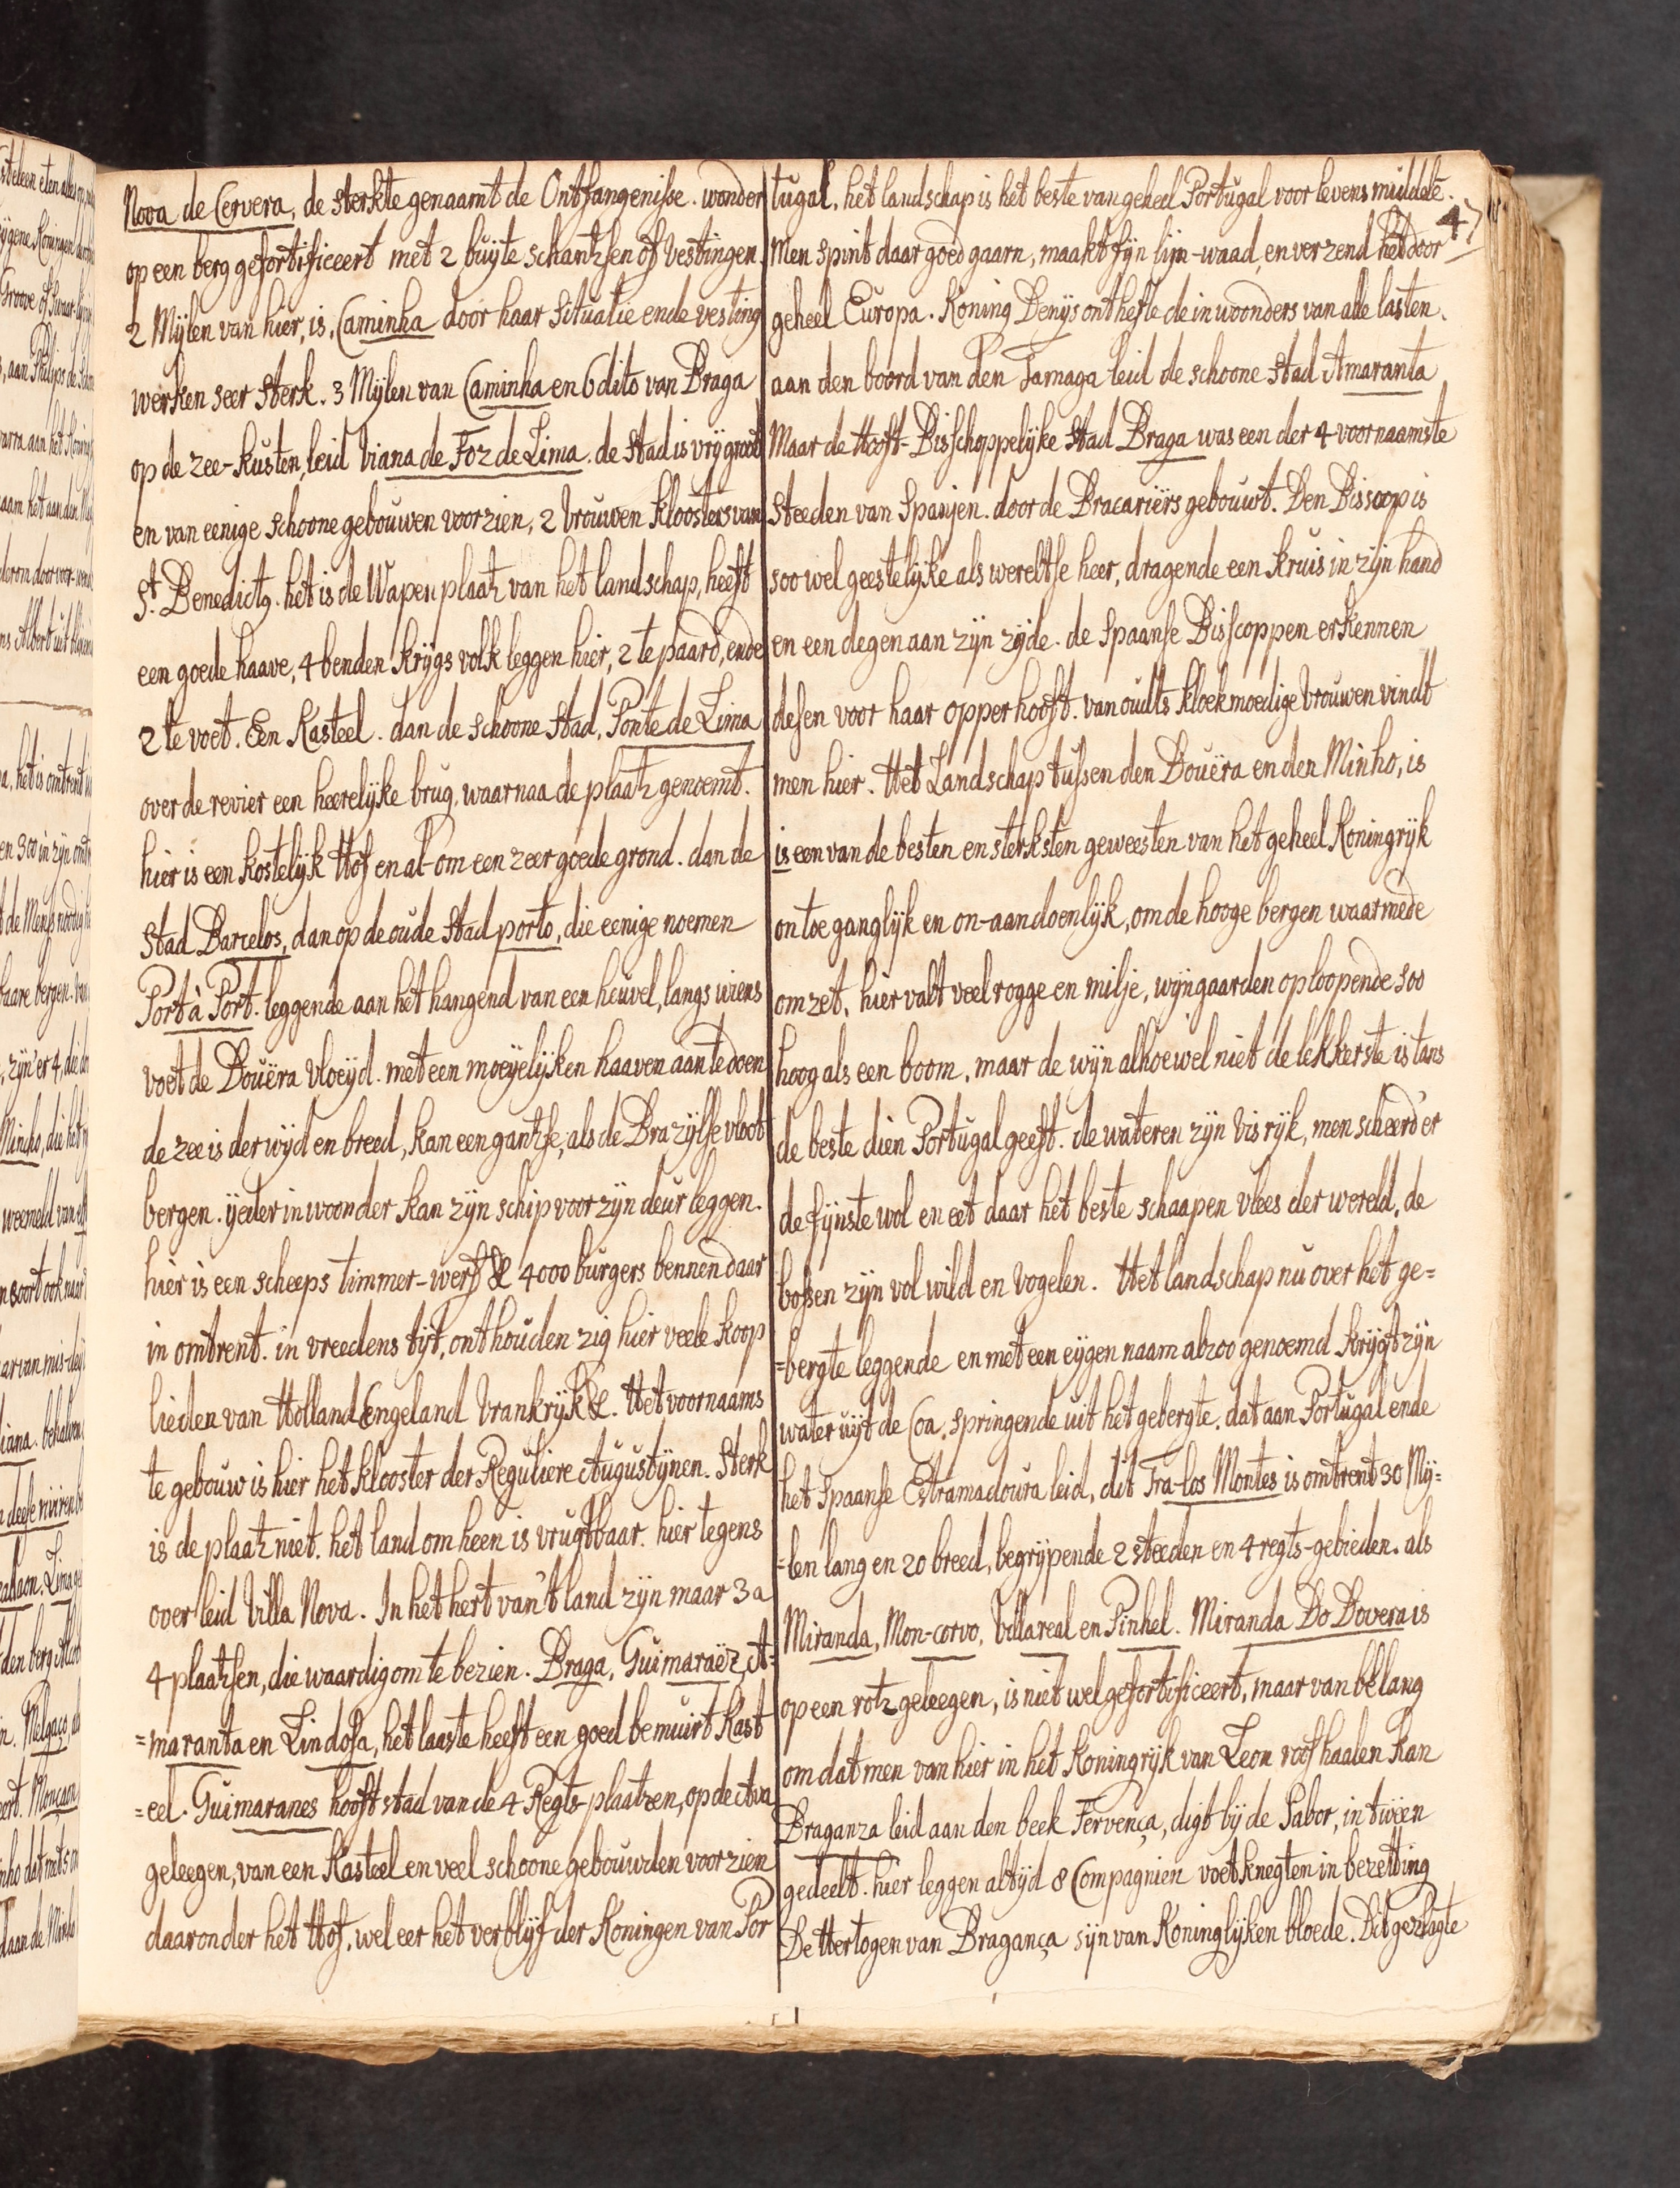 Nova de Cervera, de sterkte genaamt de Ontfangenisse. wonder
op een berg gefortificeert met 2 buyte schantzen of vestingen.
2 Mylen van hier, is, Caminha door haar situatie ende vesting
werken seer sterk. 3 Mylen van Caminha en 6 dito van Braga
op de zee-kusten, leid Viana de Foz de Lima. de stad is vry groot
en van eenige schoone gebouwen voorzien, 2 vrouwen kloosters van
St. Benedictg. het is de Wapen plaatz van het landschap, heeft
een goede haave, 4 benden krygs volk leggen hier, 2 te paard, ende
2 te voet. Een Kasteel. dan de schoone stad, Ponte de Lima
over de revier een heerelyke brug, waarnaa de plaatz genoemt.
hier is een kostelyk Hof en al-om een zeer goede grond. dan de
stad Barcelos, dan op de oude stad porto, die eenige noemen
Port à Port. leggende aan het hangend van een heuvel, langs wiens
voet de Douëra vloeyd. met een moeyelyken haaven aan te doen
de zee is der wyd en breed, kan een gantze, als de Brazylse vloot
bergen. yeder inwoonder kan zyn schip voor zyn deur leggen.
hier is een scheeps timmer-werf &c 4000 burgers bennen daar
in omtrent. in vreedens tyt, onthouden zig hier veele koop
lieden van Holland Engeland Vrankryk &c. Het voornaams
te gebouw is hier het klooster der Reguliere Augustynen. Sterk
is de plaatz niet. het land om heen is vrugtbaar. hier tegens
over leid Villa Nova. In het hert van't land zyn maar 3 a
4 plaatzen, die waardig om te bezien. Braga, Guimaraëz, A=
=maranta en Lindosa, het laaste heeft een goed bemuirt Kast
=eel. Guimaranes hooft stad van de 4 Regts-plaatzen, op de Ava
geleegen, van een Kasteel en veel schoone gebouwden voorzien
daaronder het Hof, wel eer het verblyf der Koningen van Por
47
tugal, het landschap is het beste van geheel Portugal voor levens middele.
Men spint daar goed gaarn, maakt fyn lyn-waad, en verzend het door
geheel Europa. Koning Denys onthefte de inwoonders van alle lasten.
aan den boord van den Tamaga leid de schoone stad Amaranta
Maar de Hooft-Bisschoppelyke stad Braga was een der 4 voornaamste
steeden van Spanjen. door de Bracariërs gebouwt. Den Bisscop is
soo wel geestelyke als wereltse heer, dragende een kruis in zyn hand
en een degen aan zyn zyde. de Spaanse Bisscoppen erkennen
desen voor haar opperhooft. van oudts kloekmoedige vrouwen vindt
men hier. Het Landschap tussen den Douëra en den Minho, is
is een van de besten en sterksten geweesten van het geheel Koningryk
ontoeganglyk en on-aandoenlyk, om de hooge bergen waarmede
omzet, hier valt veel rogge en milje, wyngaarden oploopende soo
hoog als een boom, maar de wyn alhoewel niet de lekkerste is tans
de beste dien Portugal geeft. de wateren zyn visryk, men scheerd'er
de fynste wol en eet daar het beste schaapen vlees der wereld, de
bossen zyn vol wild en vogelen. Het landschap nu over het ge=
=bergte leggende en met een eygen naam alzoo genoemd krygt zyn
water uyt de Coa, springende uit het gebergte, dat aan Portugal ende
het Spaanse Estramadoura leid, dit Tra-los Montes is omtrent 30 My=
=len lang en 20 breed, begrypende 2 steeden en 4 regts-gebieden. als
Miranda, Mon-corvo, Villareal en Pinhel. Miranda Do Dovera is
op een rotz geleegen, is niet wel gefortificeert, maar van belang
om dat men van hier in het Koningryk van Leon roof haalen kan
Braganza leid aan den beek Fervença, digt by de Sabor, in twëen
gedeelt. hier leggen altyd 8 Compagnien voetknegten in bezetting
De Hertogen van Bragança syn van Koninglyken bloede. Dit geslagte